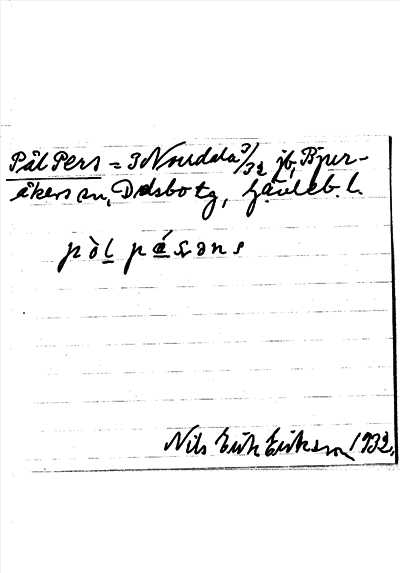 Pål Pers = 3 Norrdala 3/32 jb, Bjur-
åkers sn, Delsbo tg, Gävleb. l.
pò̱l pǽsəns
Nils Erik Eriksson 1932.